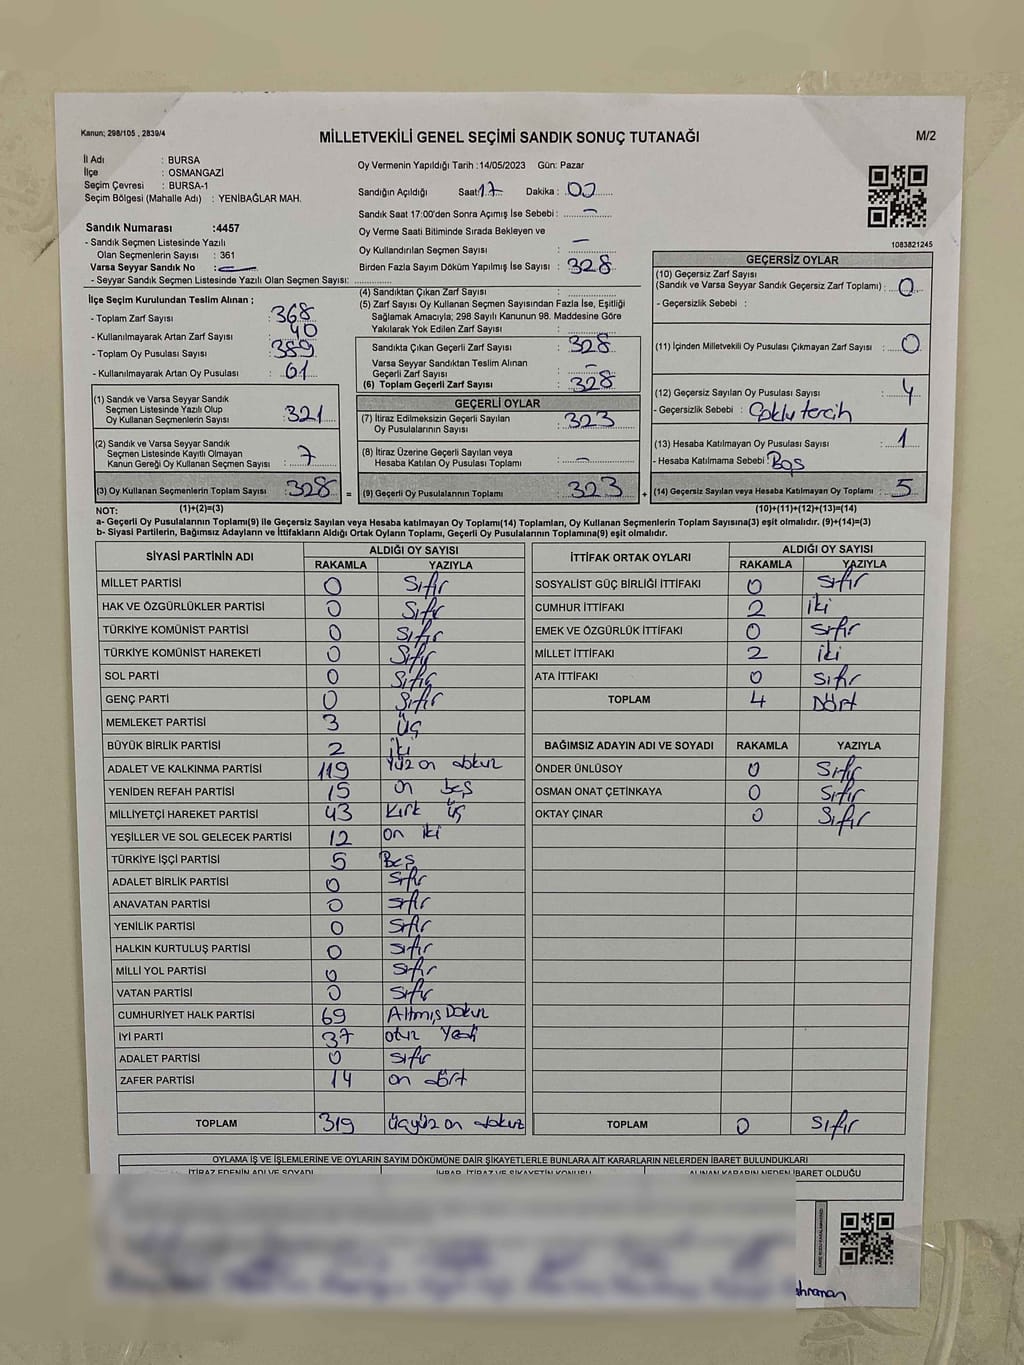 Kanun; 298/105 , 2839/4
MİLLETVEKİLİ GENEL SEÇİMİ SANDIK SONUÇ TUTANAĞI
M/2
İl Adı : BURSA
İlçe : OSMANGAZİ
Seçim Çevresi : BURSA-1
Seçim Bölgesi (Mahalle Adı) : YENİBAĞLAR MAH.
Sandık Numarası :4457
- Sandık Seçmen Listesinde Yazılı
Olan Seçmenlerin Sayısı : 361
Varsa Seyyar Sandık No :
- Seyyar Sandık Seçmen Listesinde Yazılı Olan Seçmen Sayısı:
İlçe Seçim Kurulundan Teslim Alınan ;
- Toplam Zarf Sayısı : 368
- Kullanılmayarak Artan Zarf Sayısı : 40
- Toplam Oy Pusulası Sayısı : 389
- Kullanılmayarak Artan Oy Pusulası : 61
(1) Sandık ve Varsa Seyyar Sandık
Seçmen Listesinde Yazılı Olup
Oy Kullanan Seçmenlerin Sayısı : 321
(2) Sandık ve Varsa Seyyar Sandık
Seçmen Listesinde Kayıtlı Olmayan
Kanun Gereği Oy Kullanan Seçmen Sayısı : 7
(3) Oy Kullanan Seçmenlerin Toplam Sayısı : 328 =
Oy Vermenin Yapıldığı Tarih :14/05/2023 Gün: Pazar
Sandığın Açıldığı Saat: 17 Dakika : 00
Sandık Saat 17:00'den Sonra Açımış İse Sebebi : —
Oy Verme Saati Bitiminde Sırada Bekleyen ve
Oy Kullandırılan Seçmen Sayısı : —
Birden Fazla Sayım Döküm Yapılmış İse Sayısı : 328
(4) Sandıktan Çıkan Zarf Sayısı :
(5) Zarf Sayısı Oy Kullanan Seçmen Sayısından Fazla İse, Eşitliği
Sağlamak Amacıyla; 298 Sayılı Kanunun 98. Maddesine Göre
Yakılarak Yok Edilen Zarf Sayısı :
Sandıkta Çıkan Geçerli Zarf Sayısı : 328
Varsa Seyyar Sandıktan Teslim Alınan
Geçerli Zarf Sayısı : —
(6) Toplam Geçerli Zarf Sayısı : 328
GEÇERLİ OYLAR
(7) İtiraz Edilmeksizin Geçerli Sayılan
Oy Pusulalarının Sayısı : 323
(8) İtiraz Üzerine Geçerli Sayılan veya
Hesaba Katılan Oy Pusulası Toplamı : —
(9) Geçerli Oy Pusulalarının Toplamı : 323 +
1083821245
GEÇERSİZ OYLAR
(10) Geçersiz Zarf Sayısı
(Sandık ve Varsa Seyyar Sandık Geçersiz Zarf Toplamı) : 0
- Geçersizlik Sebebi :
(11) İçinden Milletvekili Oy Pusulası Çıkmayan Zarf Sayısı : 0
(12) Geçersiz Sayılan Oy Pusulası Sayısı : 4
- Geçersizlik Sebebi : Çoklu tercih
(13) Hesaba Katılmayan Oy Pusulası Sayısı : 1
- Hesaba Katılmama Sebebi : Boş
(14) Geçersiz Sayılan veya Hesaba Katılmayan Oy Toplamı : 5
NOT: (1)+(2)=(3) (10)+(11)+(12)+(13)=(14)
a- Geçerli Oy Pusulalarının Toplamı(9) ile Geçersiz Sayılan veya Hesaba Katılmayan Oy Toplamı(14) Toplamları, Oy Kullanan Seçmenlerin Toplam Sayısına(3) eşit olmalıdır. (9)+(14)=(3)
b- Siyasi Partilerin, Bağımsız Adayların ve İttifakların Aldığı Ortak Oyların Toplamı, Geçerli Oy Pusulalarının Toplamına(9) eşit olmalıdır.
SİYASİ PARTİNİN ADI ALDIĞI OY SAYISI
RAKAMLA YAZIYLA
MİLLET PARTİSİ 0 Sıfır
HAK VE ÖZGÜRLÜKLER PARTİSİ 0 Sıfır
TÜRKİYE KOMÜNİST PARTİSİ 0 Sıfır
TÜRKİYE KOMÜNİST HAREKETİ 0 Sıfır
SOL PARTİ 0 Sıfır
GENÇ PARTİ 0 Sıfır
MEMLEKET PARTİSİ 3 Üç
BÜYÜK BİRLİK PARTİSİ 2 İki
ADALET VE KALKINMA PARTİSİ 119 Yüz on dokuz
YENİDEN REFAH PARTİSİ 15 on beş
MİLLİYETÇİ HAREKET PARTİSİ 43 Kırk üç
YEŞİLLER VE SOL GELECEK PARTİSİ 12 on iki
TÜRKİYE İŞÇİ PARTİSİ 5 Beş
ADALET BİRLİK PARTİSİ 0 Sıfır
ANAVATAN PARTİSİ 0 Sıfır
YENİLİK PARTİSİ 0 Sıfır
HALKIN KURTULUŞ PARTİSİ 0 Sıfır
MİLLİ YOL PARTİSİ 0 Sıfır
VATAN PARTİSİ 0 Sıfır
CUMHURİYET HALK PARTİSİ 69 Altmış Dokuz
İYİ PARTİ 37 otuz Yedi
ADALET PARTİSİ 0 sıfır
ZAFER PARTİSİ 14 on dört
TOPLAM 319 üçyüz on dokuz
İTTİFAK ORTAK OYLARI ALDIĞI OY SAYISI
RAKAMLA YAZIYLA
SOSYALİST GÜÇ BİRLİĞİ İTTİFAKI 0 Sıfır
CUMHUR İTTİFAKI 2 iki
EMEK VE ÖZGÜRLÜK İTTİFAKI 0 Sıfır
MİLLET İTTİFAKI 2 iki
ATA İTTİFAKI 0 Sıfır
TOPLAM 4 Dört
BAĞIMSIZ ADAYIN ADI VE SOYADI RAKAMLA YAZIYLA
ÖNDER ÜNLÜSOY 0 Sıfır
OSMAN ONAT ÇETİNKAYA 0 Sıfır
OKTAY ÇINAR 0 Sıfır
TOPLAM 0 Sıfır
OYLAMA İŞ VE İŞLEMLERİNE VE OYLARIN SAYIM DÖKÜMÜNE DAİR ŞİKAYETLERLE BUNLARA AİT KARARLARIN NELERDEN İBARET BULUNDUKLARI
İTİRAZ EDENİN ADI VE SOYADI İHBAR, İTİRAZ VE ŞİKAYETİN KONUSU ALINAN KARARIN NEDEN İBARET OLDUĞU